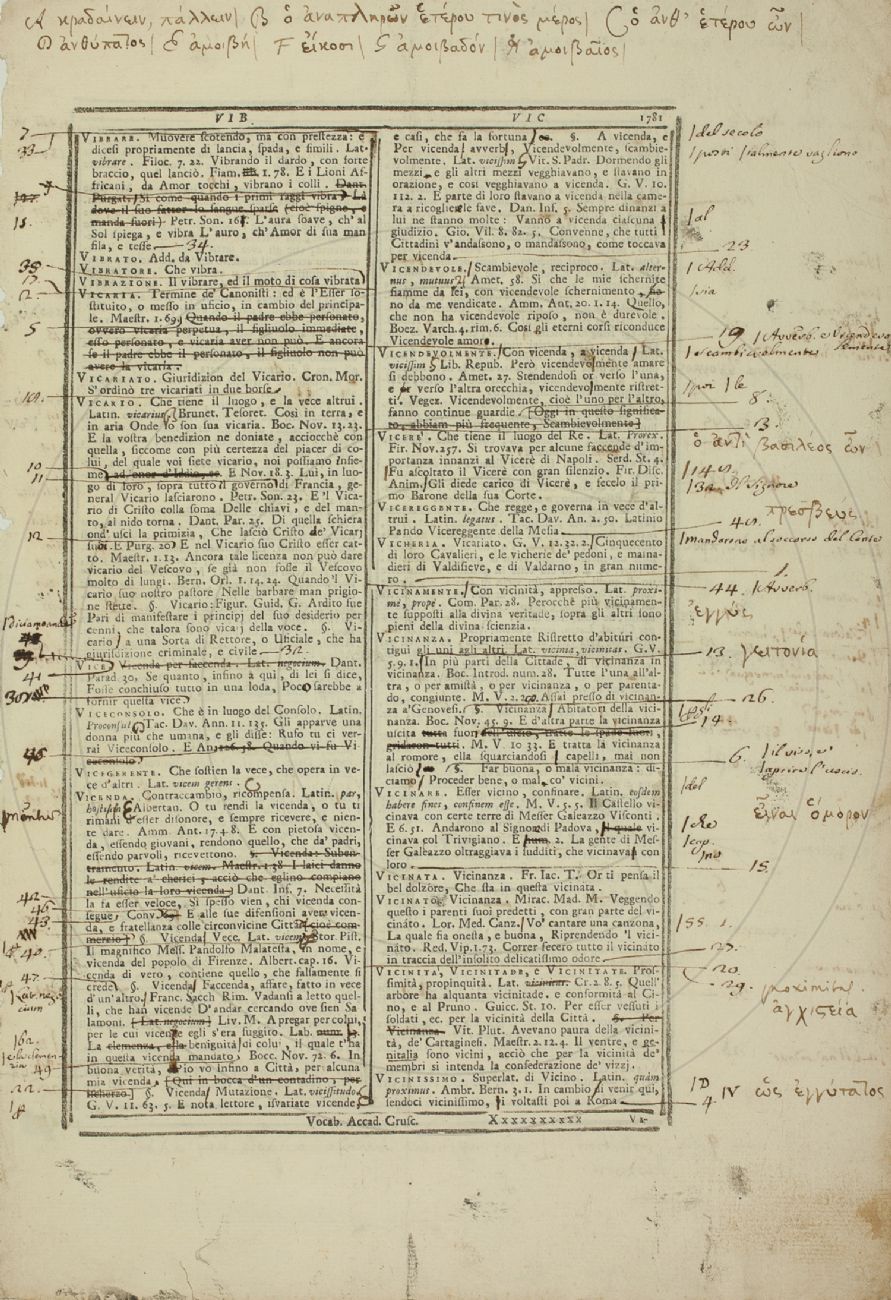 A κραδαίνειν, πάλλειν| B ὁ ἀναπληρῶν ἑτέρου τινὸς μέρος| C ὁ ἀνθ' ἑτέρου ὢν|
D ἀνθύπατος| E ἀμοιβή| F εἴκοσι| G ἀμοιβαδόν| H ἀμοιβαῖος|
VIB VIC 1781
VIBRARE. Muovere scotendo, ma con prestezza: e
dicesi propriamente di lancia, spada, e simili. Lat.
vibrare. Filoc. 7. 22. Vibrando il dardo, con forte
braccio, quel lanciò. Fiam. 1. 78. E i Lioni Af-
fricani, da Amor tocchi, vibrano i colli. Dant.
Purgat. Sì come quando i primi raggi vibra Là
dove il suo fattor lo sangue sparse (cioè spigne, e
manda fuori) Petr. Son. 167. L'aura soave, ch'al
Sol spiega, e vibra L'auro, ch'Amor di sua man
fila, e tesse 34.
VIBRATO. Add. da Vibrare.
VIBRATORE. Che vibra.
VIBRAZIONE. Il vibrare, ed il moto di cosa vibrata
VICARIA. Termine de' Canonisti: ed è l'Esser so-
stituito, o messo in uficio, in cambio del principa-
le. Maestr. 1. 69. Quando il padre ebbe personato,
ovvero vicaria perpetua, il figliuolo immediate,
esso personato, e vicaria aver non può. E ancora
se il padre ebbe il personato, il figliuolo non può
avere la vicaria.
VICARIATO. Giuridizion del Vicario. Cron. Mor.
S'ordinò tre vicariati in due borse
VICARIO. Che tiene il luogo, e la vece altrui.
Latin. vicarius. Brunet. Tesoret. Così in terra, e
in aria Onde vo son sua vicaria. Boc. Nov. 13. 23.
E la vostra benedizion ne doniate, acciocchè con
quella, siccome con più certezza del piacer di co-
lui, del quale voi siete vicario, noi possiamo insie-
me ad onor d'Iddio, ec. E Nov. 18. 3. Lui, in luo-
go di loro, sopra tutto il governo di Francia, ge-
neral Vicario lasciarono. Petr. Son. 23. E 'l Vica-
rio di Cristo colla soma Delle chiavi, e del man-
to, al nido torna. Dant. Par. 25. Di quella schiera
ond'uscì la primizia, Che lasciò Cristo de' Vicarj
suoi. E Purg. 20. E nel Vicario suo Cristo esser cat-
to. Maestr. 1. 13. Ancora tale licenza non può dare
vicario del Vescovo, se già non fosse il Vescovo
molto di lungi. Bern. Orl. 1. 14. 24. Quando 'l Vi-
cario suo nostro pastore Nelle barbare man prigio-
ne stette. §. Vicario: Figur. Guid. G. Ardito sue
Pari di manifestare i principj del suo desiderio per
cenni, che talora sono vicarj della voce. §. Vi-
cario a una Sorta di Rettore, o Uficiale, che ha
giurisdizione criminale, e civile 32
VICE. Vicenda per faccenda. Lat. negocium. Dant.
Parad. 30. Se quanto, infino a qui, di lei si dice,
Fosse conchiuso tutto in una loda, Poco sarebbe a
fornir questa vice
VICECONSOLO. Che è in luogo del Consolo. Latin.
Proconsul. Tac. Dav. Ann. 11. 135. Gli apparve una
donna più che umana, e gli disse: Rufo tu ci ver-
rai Viceconsolo. E An. 126. 38. Quando vi fu Vi
ceconsolo
VICEGERENTE. Che sostien la vece, che opera in ve-
ce d'altri. Lat. vicem gerens.
VICENDA. Contraccambio, ricompensa. Latin. par,
Albertan. O tu rendi la vicenda, o tu ti
rimani d'esser disonore, e sempre ricevere, e nien-
te dare. Amm. Ant. 17. 4. 8. E con pietosa vicen-
da, essendo giovani, rendono quello, che da' padri,
essendo parvoli, ricevettono. §. Vicenda: Suben-
tramento. Latin. vicem. Maestr. 1. 38. I laici danno
le rendite a' cherici, acciò che eglino compiano
nell'uficio la loro vicenda. Dant. Inf. 7. Necessità
la fa esser veloce, Sì spesso vien, chi vicenda con-
segue. E alle sue difensioni aver vicen-
da, e fratellanza colle circonvicine Città (cioè com-
mercio) §. Vicenda, Vece. Lat. vicem. Stor. Pist.
Il magnifico Mess. Pandolfo Malatesta, in nome, e
vicenda del popolo di Firenze. Albert. cap. 16. Vi-
cenda di vero, contiene quello, che falsamente si
crede §. Vicenda, Faccenda, affare, fatto in vece
d'un'altro. Franc. Sacch Rim. Vadansi a letto quel-
li, che han vicende D'andar cercando ove sien Sa
lamoni. (Lat. negocium) Liv. M. Apregar per colui,
per le cui vicende egli s'era fuggito. Lab. num.
La clemenza, e la benignità di colui, il quale t'ha
in questa vicenda mandato. Bocc. Nov. 72. 6. In
buona verità, io vo infino a Città, per alcuna
mia vicenda (Qui in bocca d'un contadino, per
ischerzo) §. Vicenda, Mutazione. Lat. vicissitudo.
G. V. 11. 63. 5. E nota lettore, isvariate vicende
e casi, che fa la fortuna, ec. §. A vicenda, e
Per vicenda avverb. Vicendevolmente, scambie-
volmente. Lat. vicissim. Vit. S. Padr. Dormendo gli
mezzi, e gli altri mezzi vegghiavano, e stavano in
orazione, e così vegghiavano a vicenda. G. V. 10.
112. 2. E parte di loro stavano a vicenda nella came-
ra a ricogliere le fave. Dan. Inf. 5. Sempre dinanzi a
lui ne stanno molte: Vanno a vicenda ciascuna al
giudizio. Gio. Vil. 8. 82. 5. Convenne, che tutti i
Cittadini v'andassono, o mandassono, come toccava
per vicenda 23
VICENDEVOLE. Scambievole, reciproco. Lat. alter-
nus, mutuus. Amet. 58. Sì che le mie schernite
fiamme da lei, con vicendevole schernimento, sie-
no da me vendicate. Amm. Ant. 20. 1. 14. Quello,
che non ha vicendevole riposo, non è durevole.
Boez. Varch. 4. rim. 6. Così gli eterni corsi riconduce
Vicendevole amore.
VICENDEVOLMENTE. Con vicenda, a vicenda. Lat.
vicissim. Lib. Repub. Però vicendevolmente amare
si debbono. Amet. 27. Stendendosi or verso l'una,
e or verso l'altra orecchia, vicendevolmente ristret-
ti. Vegez. Vicendevolmente, cioè l'uno per l'altro,
fanno continue guardie (Oggi in questo significa-
to, abbiam più frequente, Scambievolmente)
VICERÈ. Che tiene il luogo del Re. Lat. Prorex.
Fir. Nov. 257. Si trovava per alcune faccende d'im-
portanza innanzi al Vicerè di Napoli. Serd. St. 4.
Fu ascoltato il Vicerè con gran silenzio. Fir. Disc.
Anim. Gli diede carico di Vicerè, e fecelo il pri-
mo Barone della sua Corte.
VICEREGGENTE. Che regge, e governa in vece d'al-
trui. Latin. legatus. Tac. Dav. An. 2. 50. Latinio
Pando Vicereggente della Mesia
VICHERIA. Vicariato. G. V. 12. 32. 2. Cinquecento
di loro Cavalieri, e le vicherie de' pedoni, e maina-
dieri di Valdisieve, e di Valdarno, in gran nume-
ro.
VICINAMENTE. Con vicinità, appresso. Lat. proxi-
mè, propè. Com. Par. 28. Perocchè più vicinamen-
te supposti alla divina veritade, sopra gli altri sono
pieni della divina scienzia.
VICINANZA. Propriamente Ristretto d'abituri con-
tigui gli uni agli altri. Lat. vicinia, vicinitas. G. V.
5. 9. 1. In più parti della Cittade, di vicinanza in
vicinanza. Boc. Introd. num. 28. Tutte l'una all'al-
tra, o per amistà, o per vicinanza, o per parenta-
do, congiunte. M. V. 2. 29. Assai presso di vicinan-
za a' Genovesi. §. Vicinanza: Abitatori della vici-
nanza. Boc. Nov. 45. 9. E d'altra parte la vicinanza
uscita tutta fuori dell'uscio, tratte le spade fuori,
gridaron tutti. M. V. 10. 33. E tratta la vicinanza
al romore, ella squarciandosi i capelli, mai non
lasciò §. Far buona, o mala vicinanza: di-
ciamo, Proceder bene, o mal co' vicini.
VICINARE. Esser vicino, confinare. Latin. eosdem
habere fines, confinem esse. M. V. 5. 5. Il Castello vi-
cinava con certe terre di Messer Galeazzo Visconti.
E 6. 51. Andarono al Signor di Padova, il quale vi-
cinava col Trivigiano. E num. 2. La gente di Mes-
ser Galeazzo oltraggiava i sudditi, che vicinava con
loro
VICINATA. Vicinanza. Fr. Iac. T. Or ti pensa il
bel dolzore, Che sta in questa vicinata.
VICINATO. Vicinanza. Mirac. Mad. M. Veggendo
questo i parenti suoi predetti, con gran parte del vi-
cinato. Lor. Med. Canz. Vo' cantare una canzona,
La quale sia onesta, e buona, Riprendendo 'l vici-
nato. Red. Vip. 1. 73. Correr fecero tutto il vicinato
in traccia dell'insolito delicatissimo odore
VICINITÀ, VICINITADE, E VICINITATE. Pros-
simità, propinquità. Lat. vicinitas. Cr. 2. 8. 5. Quell'
arbore ha alquanta vicinitade, e conformità al Ci-
no, e al Pruno. Guicc. St. 10. Per esser vessuti i
soldati, ec. per la vicinità della Città. §. Per
Vicinanza. Vit. Plut. Avevano paura della vicini-
tà, de' Cartaginesi. Maestr. 2. 12. 4. Il ventre, e ge-
nitalia sono vicini, acciò che per la vicinità de'
membri si intenda la confederazione de' vizzj.
VICINISSIMO. Superlat. di Vicino. Latin. quàm
proximus. Ambr. Bern. 3. 1. In cambio di venir qui,
sendoci vicinissimo, si voltasti poi a Roma
Vocab. Accad. Crusc. Xxxxxxxxxx Vi-
|del secolo
|al
23.
|Add.
|via
19. |Avverb.
|Scambievolmente
8.
13.
ὁ ἀντὶ βασιλέως ὢν
πρέσβευς
|mandarono al soccorso del Conte
1.
44. |Avverb.
ἐγγύς
13. γειτονία
26.
14.
6.
|del
|che
15.
|SS. 1.
27.
20.
29. proximitas.
ἀγχιστεία
|D
4. IV ὡς ἐγγύτατος